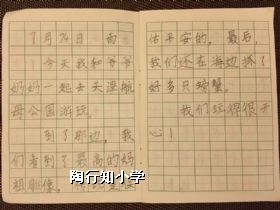 7月24日 雨
今天我和爷爷
奶奶一起去天津航
母公园游玩。
到了那边，我
们看到了最高的妈
祖雕像。
佑平安的。最后，
我们还在海边抓了
好多只螃蟹。
我们玩得很开
心！
陶行知小学